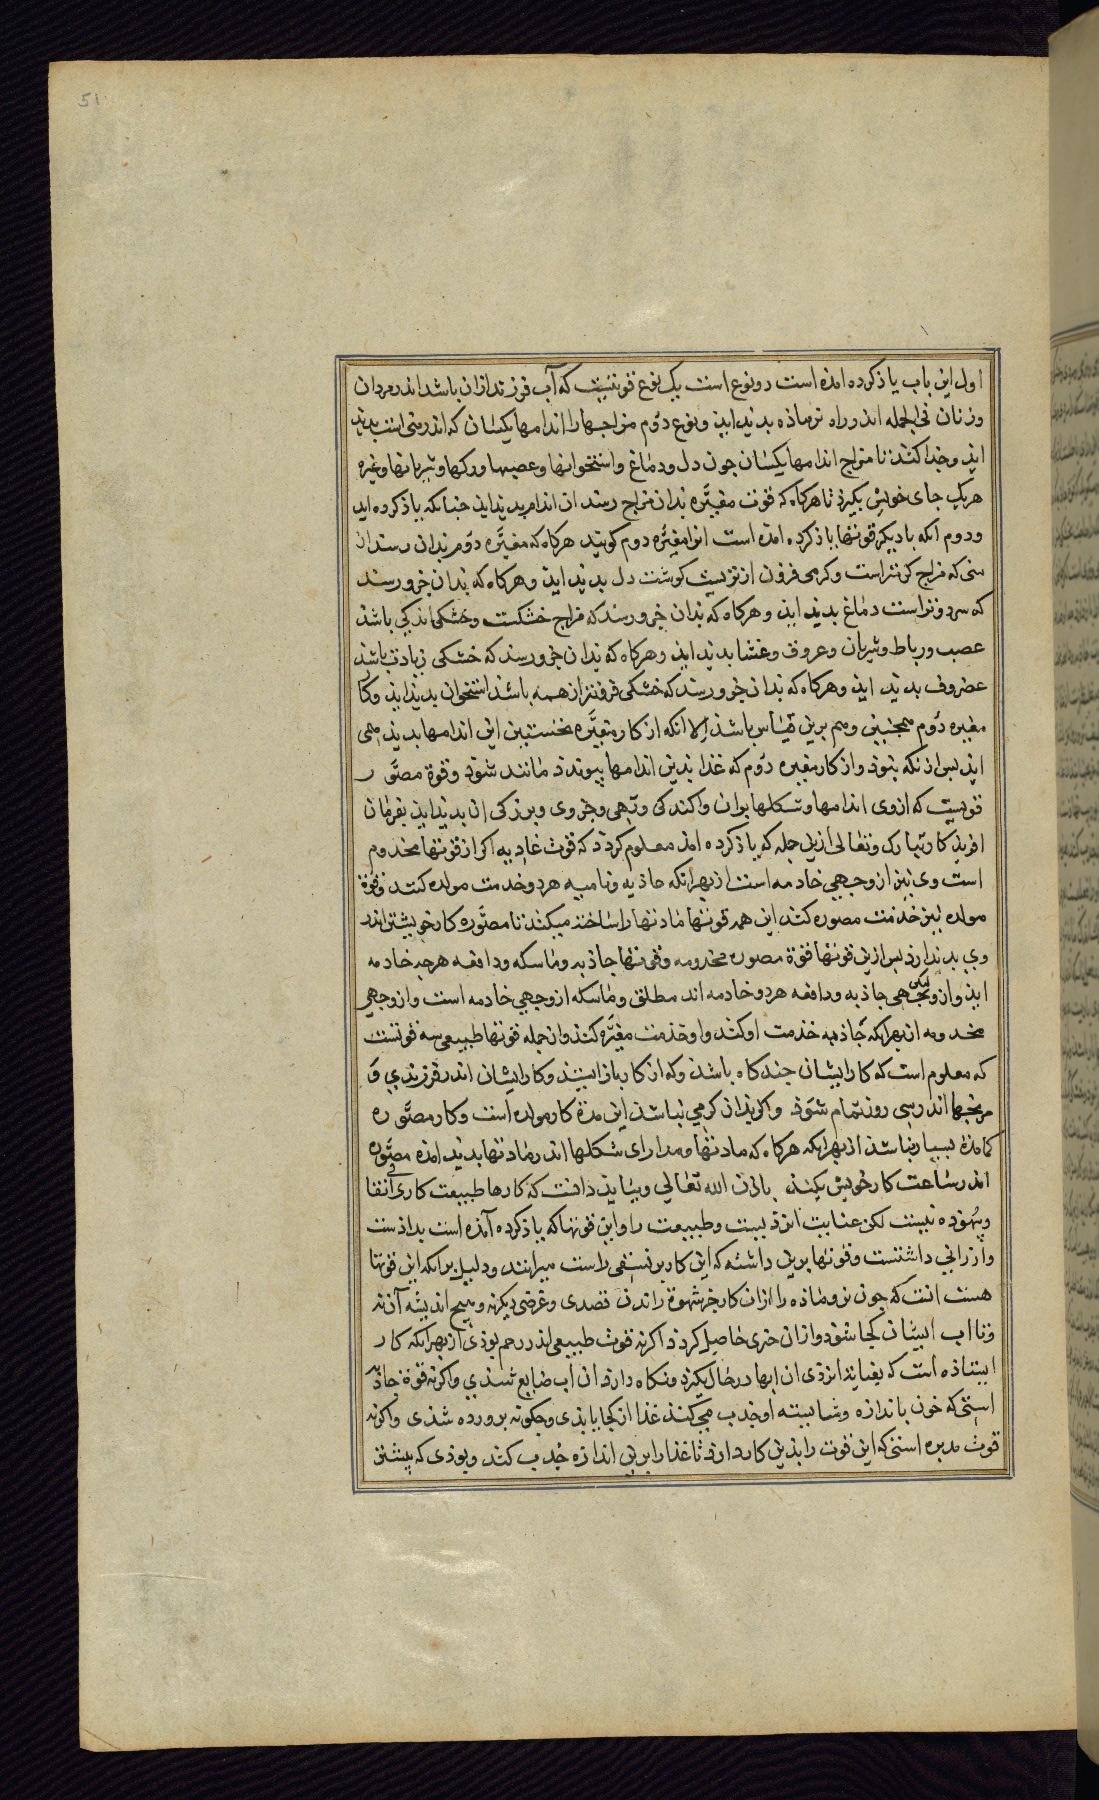 51
اول این باب یاذ کرده امذه است دو نوع است یک نوع قوتیست که آب فرزند ازان باشد اندر مردان
و زنان فی الجمله اندر راه نر ماذه بدید ایذ و نوع دوم مزاجها را اندامها یکسان که اندر منی است بدید
ایذ و جدا کند تا مزاج اندامها یکسان جون دل و دماغ و استخوانها و عصبها و رکها و شریانها و غیره
هر یک جای خویش بکیرذ تا هرکاه که قوت مغیره بدان مزاج رسد ان اندام بدید ایذ جنانکه یاذ کرده اید
و دوم آنکه با دیکر قوتها یاذ کرده امذه است انرا مغیره دوم کویند هرکاه که مغیره دوم بدان رسد از
منی که مزاج کرم‌تر است و کرمی فزون از تریست کوشت دل بدید ایذ و هرکاه که بدان جزو رسد
که سرد و تر است دماغ بدید ایذ و هرکاه که بدان جزو رسد که مزاج خشکست و خشکی اندکی باشذ
عصب و رباط و شریان و عروق و غشا بدید ایذ و هرکاه که بدان جزو رسد که خشکی زیادت باشذ
غضروف بدید ایذ و هرکاه که بدان جزو رسد که خشکی فزونتر از همه باشذ استخوان بدید ایذ و کار
مغیره دوم همجنین و هم برین قیاس باشذ الا انکه از کار مغیره نخستین این اندامها بدید همی
ایذ بس ازنکه بنوذ و از کار مغیره دوم که غذا بدین اندامها پیوندذ مانند شوذ و قوة مصور
قویست که ازوی اندامها و شکلها بران و اکندکی و تهی و خردی و بزرکی ان بدید ایذ بفرمان
افریذکار تبارک و تعالی ازین جمله که یاذ کرده امذ معلوم کردذ که قوت غاذیه اکر از قوتها مخدوم
است وی نیز از وجهی خادمه است از بهر انکه جاذبه و نامیه هر دو خدمت مولده کنند و قوة
مولده نیز خذمت مصوره کند این همه قوتها ماذتها را ساخته میکنند تا مصوره کار خویشتن اندر
وی بدید ارذ بس ازین قوتها قوة مصوره مخدومه و قوتها جاذبه و ماسکه و دافعه هرجه خادمه
ایذ و از وجهی جاذبه و دافعه هر دو خادمه اند مطلق و ماسکه از وجهی خادمه است و از وجهی
مخدومه از بهر انکه جاذبه خذمت او کند و او خذمت مغیره کند و از جمله قوتها طبیعی سه قوتست
که معلوم است که کار ایشان جند کاه باشذ و که از کار باز ایستند و کار ایشان اندر فرزندی و
اندر سی روز تمام شوذ و اکر بذان کرمی نباشذ این مدة کار مولده است و کار مصوره
کما مذه بسیار نباشذ از بهر انکه هرکاه که ماذتها و مدارای شکلها اندر ماذتها بدید امذه مصوره
اندر ساعت کار خویش بکند باذن الله تعالی و بباید دانست که کارها طبیعت کاری اتفا
و بیهوذه نیست لکن عنایت ایزدیست و طبیعت را و این قوتها که یاذ کرده آمذه است بداذست
و ارزانی داشتست و قوتها برین داشته که این کار بر نسقی راست میرانند و دلیل برانکه این قوتها
هست انست که جون نر و ماذه را ازان کار جز شهوة راندن قصدی و غرضی دیکر نه و هیج اندیشه آن نه
وتا اب ایشان کجا شوذ و ازان جزی حاصل کردذ اکر نه قوت طبیعی اندر رحم بوذی از بهر انکه کار
ایستاذه است که بعنایت ایزدی ان ابها در حال بکیرذ و نکاه دارذ ان اب ضایع شذی و اکر نه قوة جاذبه
استی که خون باندازه و شایسته او جذب می‌کند غذا از کجا یابذی و جکونه بروردہ شذی و اکر نه
قوت مدبره استی که این قوت را بذین کار دارذ تا غذا را برین اندازه جذب کند و بوذی که بیشتر